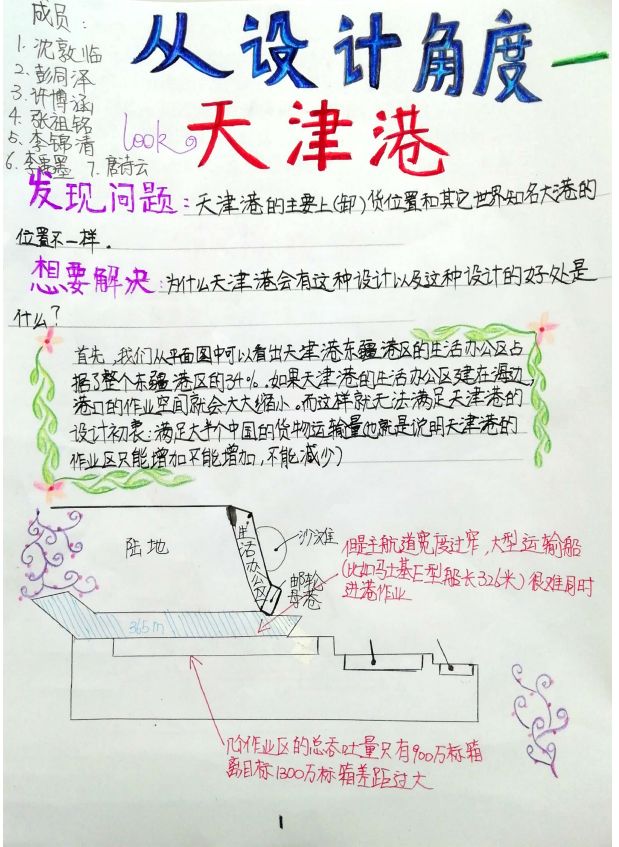 成员:
1. 沈敦临
2. 彭同泽
3. 许博涵
4. 张祖铭
5. 李锦清
6. 李墨 7. 唐诗云
从设计角度一
look 天津港
发现问题:天津港的主要上(卸)货位置和其它世界知名大港的
位置不一样.
想要解决:为什么天津港会有这种设计以及这种设计的好处是
什么?
首先,我们从平面图中可以看出天津港东疆港区的生活办公区占
据了整个东疆港区的34%。如果天津港的生活办公区建在海边,
港口的作业空间就会大大缩小。而这样就无法满足天津港的
设计初衷:满足大半个中国的货物运输量也就是说明天津港的
作业区只能增加不能增加,不能减少)
陆地
生活办公区
沙滩
邮轮
母港
但是主航道宽度过窄,大型运输船
(比如马士基E型船长326米)很难同时
进港作业
365m
几个作业区的总吞吐量只有900万标箱
离目标1300万标箱差距过大
1